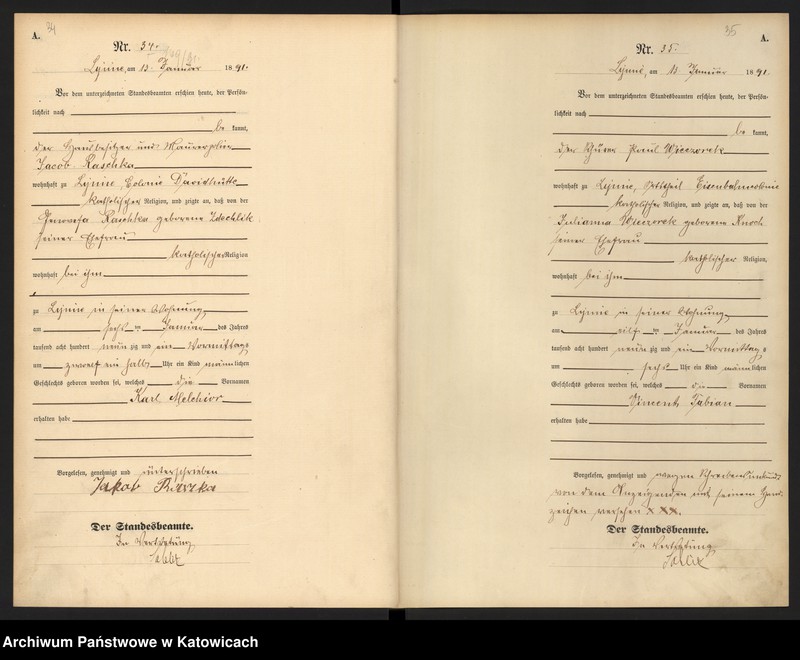 34
A.
Nr. 34.
am 13. Januar 1891.
Vor dem unterzeichneten Standesbeamten erschien heute, der Persön-
lichkeit nach
be kannt,
der Hausbesitzer und Maurerpolier
Jacob Raschka
wohnhaft zu Colonie Davidhütte
katholischer Religion, und zeigte an, daß von der
Genovefa Raschka geborene
seiner Ehefrau
katholischer Religion
wohnhaft bei ihm
zu in seiner Wohnung
am sechs ten Januar des Jahres
tausend acht hundert neun zig und ein Vormittags
um zwoelf ein halb Uhr ein Kind männlichen
Geschlechts geboren worden sei, welches die Vornamen
Karl Melchior
erhalten habe
Vorgelesen, genehmigt und unterschrieben
Jakob
Der Standesbeamte.
In Vertretung
35
A.
Nr. 35.
am 13 Januar 1891.
Vor dem unterzeichneten Standesbeamten erschien heute, der Persön-
lichkeit nach
be kannt,
der Paul Wieczorek
wohnhaft zu Ortstheil Eisenbahncolonie
katholischer Religion, und zeigte an, daß von der
Julianna Wieczorek geborene
seiner Ehefrau
katholischer Religion,
wohnhaft bei ihm
zu in seiner Wohnung
am eilf ten Januar des Jahres
tausend acht hundert neun zig und ein Vormittags
um sechs Uhr ein Kind männlichen
Geschlechts geboren worden sei, welches die Vornamen
Fabian
erhalten habe
Vorgelesen, genehmigt und wegen Schreibensunkunde
von dem Anzeigenden mit seinem Hand-
zeichen versehen XXX.
Der Standesbeamte.
In Vertretung
Archiwum Państwowe w Katowicach